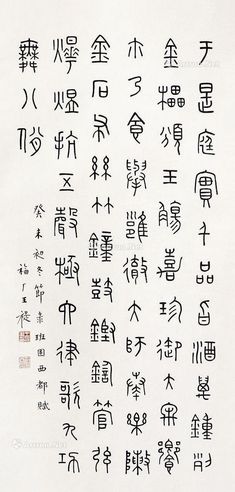 于是庭實千品旨酒萬鍾列
金罍頒玉觴嘉珍御大牢饗
尒乃食舉雍徹大師奏樂陳
金石布絲竹鐘鼓鏗鍧管弦
燁煜抗五聲極六律歌九功
舞八佾
癸未初冬節彔班固西都賦
福厂王禔